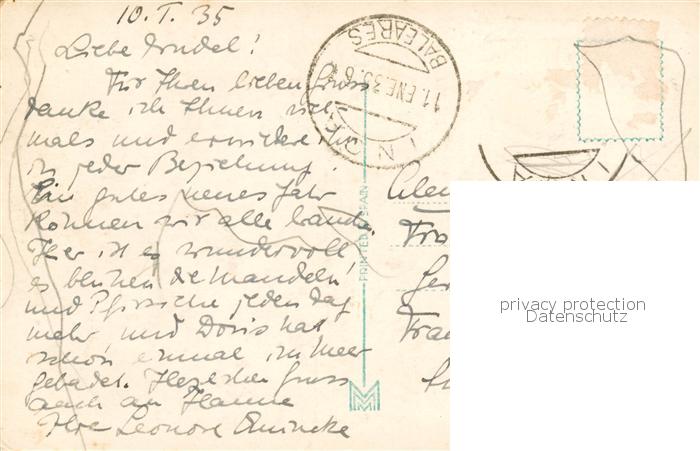 10.I.35
Liebe Trudel!
Für Ihren lieben Gruss
danke ich Ihnen viel
mals und erwidere ihn
in jeder Beziehung.
Ein gutes neues Jahr
können wir alle brauchen.
Hier ist es wundervoll
es blühen die Mandeln
und Pfirsiche jeden Tag
mehr und Doris hat
schon einmal im Meer
gebadet. Herzlichen Gruss
auch an Hanne
Ihre Leonore
INCA
11.ENE 35.6
BALEARES
PRINTED SPAIN
M
privacy protection
Datenschutz